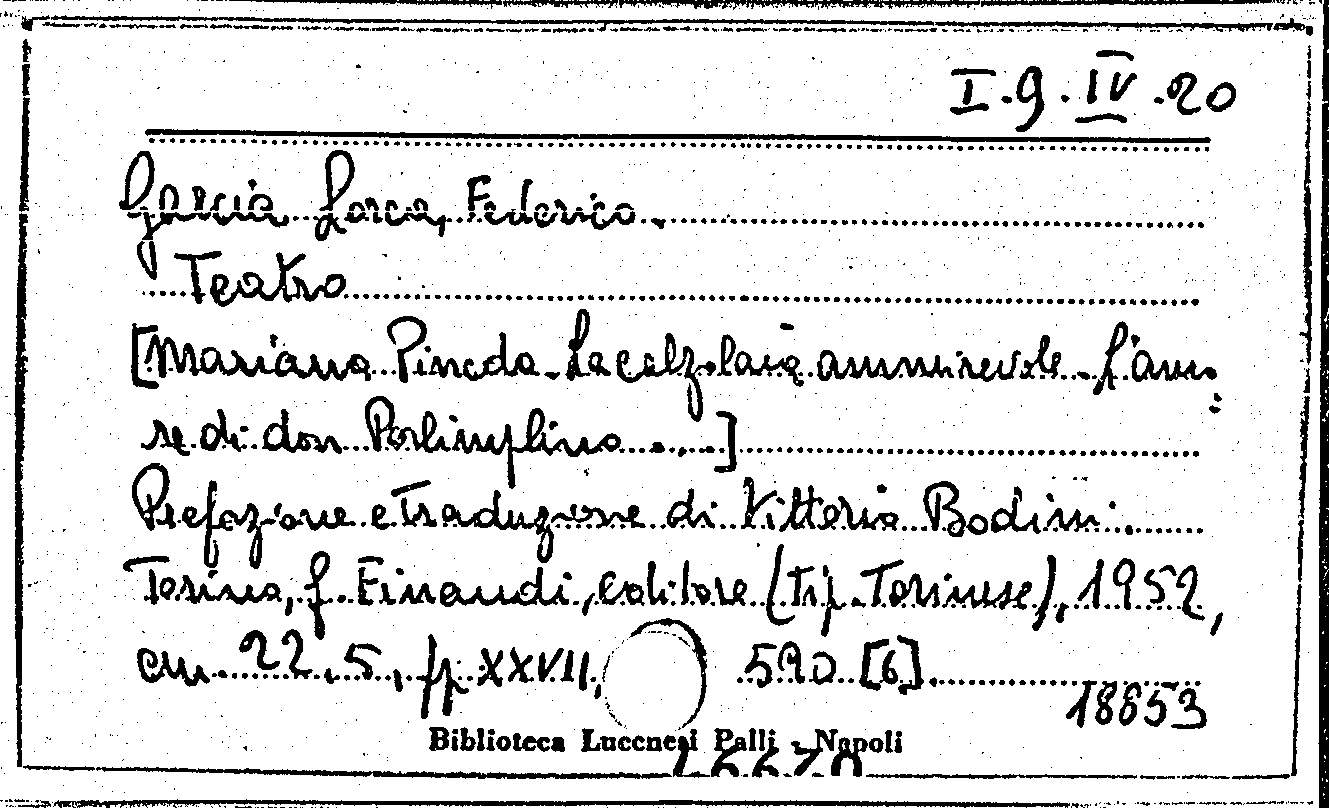 I.9.IV.20
Garcia Lorca, Federico.
Teatro
[Mariana Pineda - La calzolaia ammirevole - L'amo-
re di don Perlimplino ....]
Prefazione e Traduzione di Vittorio Bodini.
Torino, G. Einaudi, editore (tip. Torinese), 1952,
cm. 22.5, pp. XXVII, 590 [6].
18853
Biblioteca Lucchesi Palli - Napoli